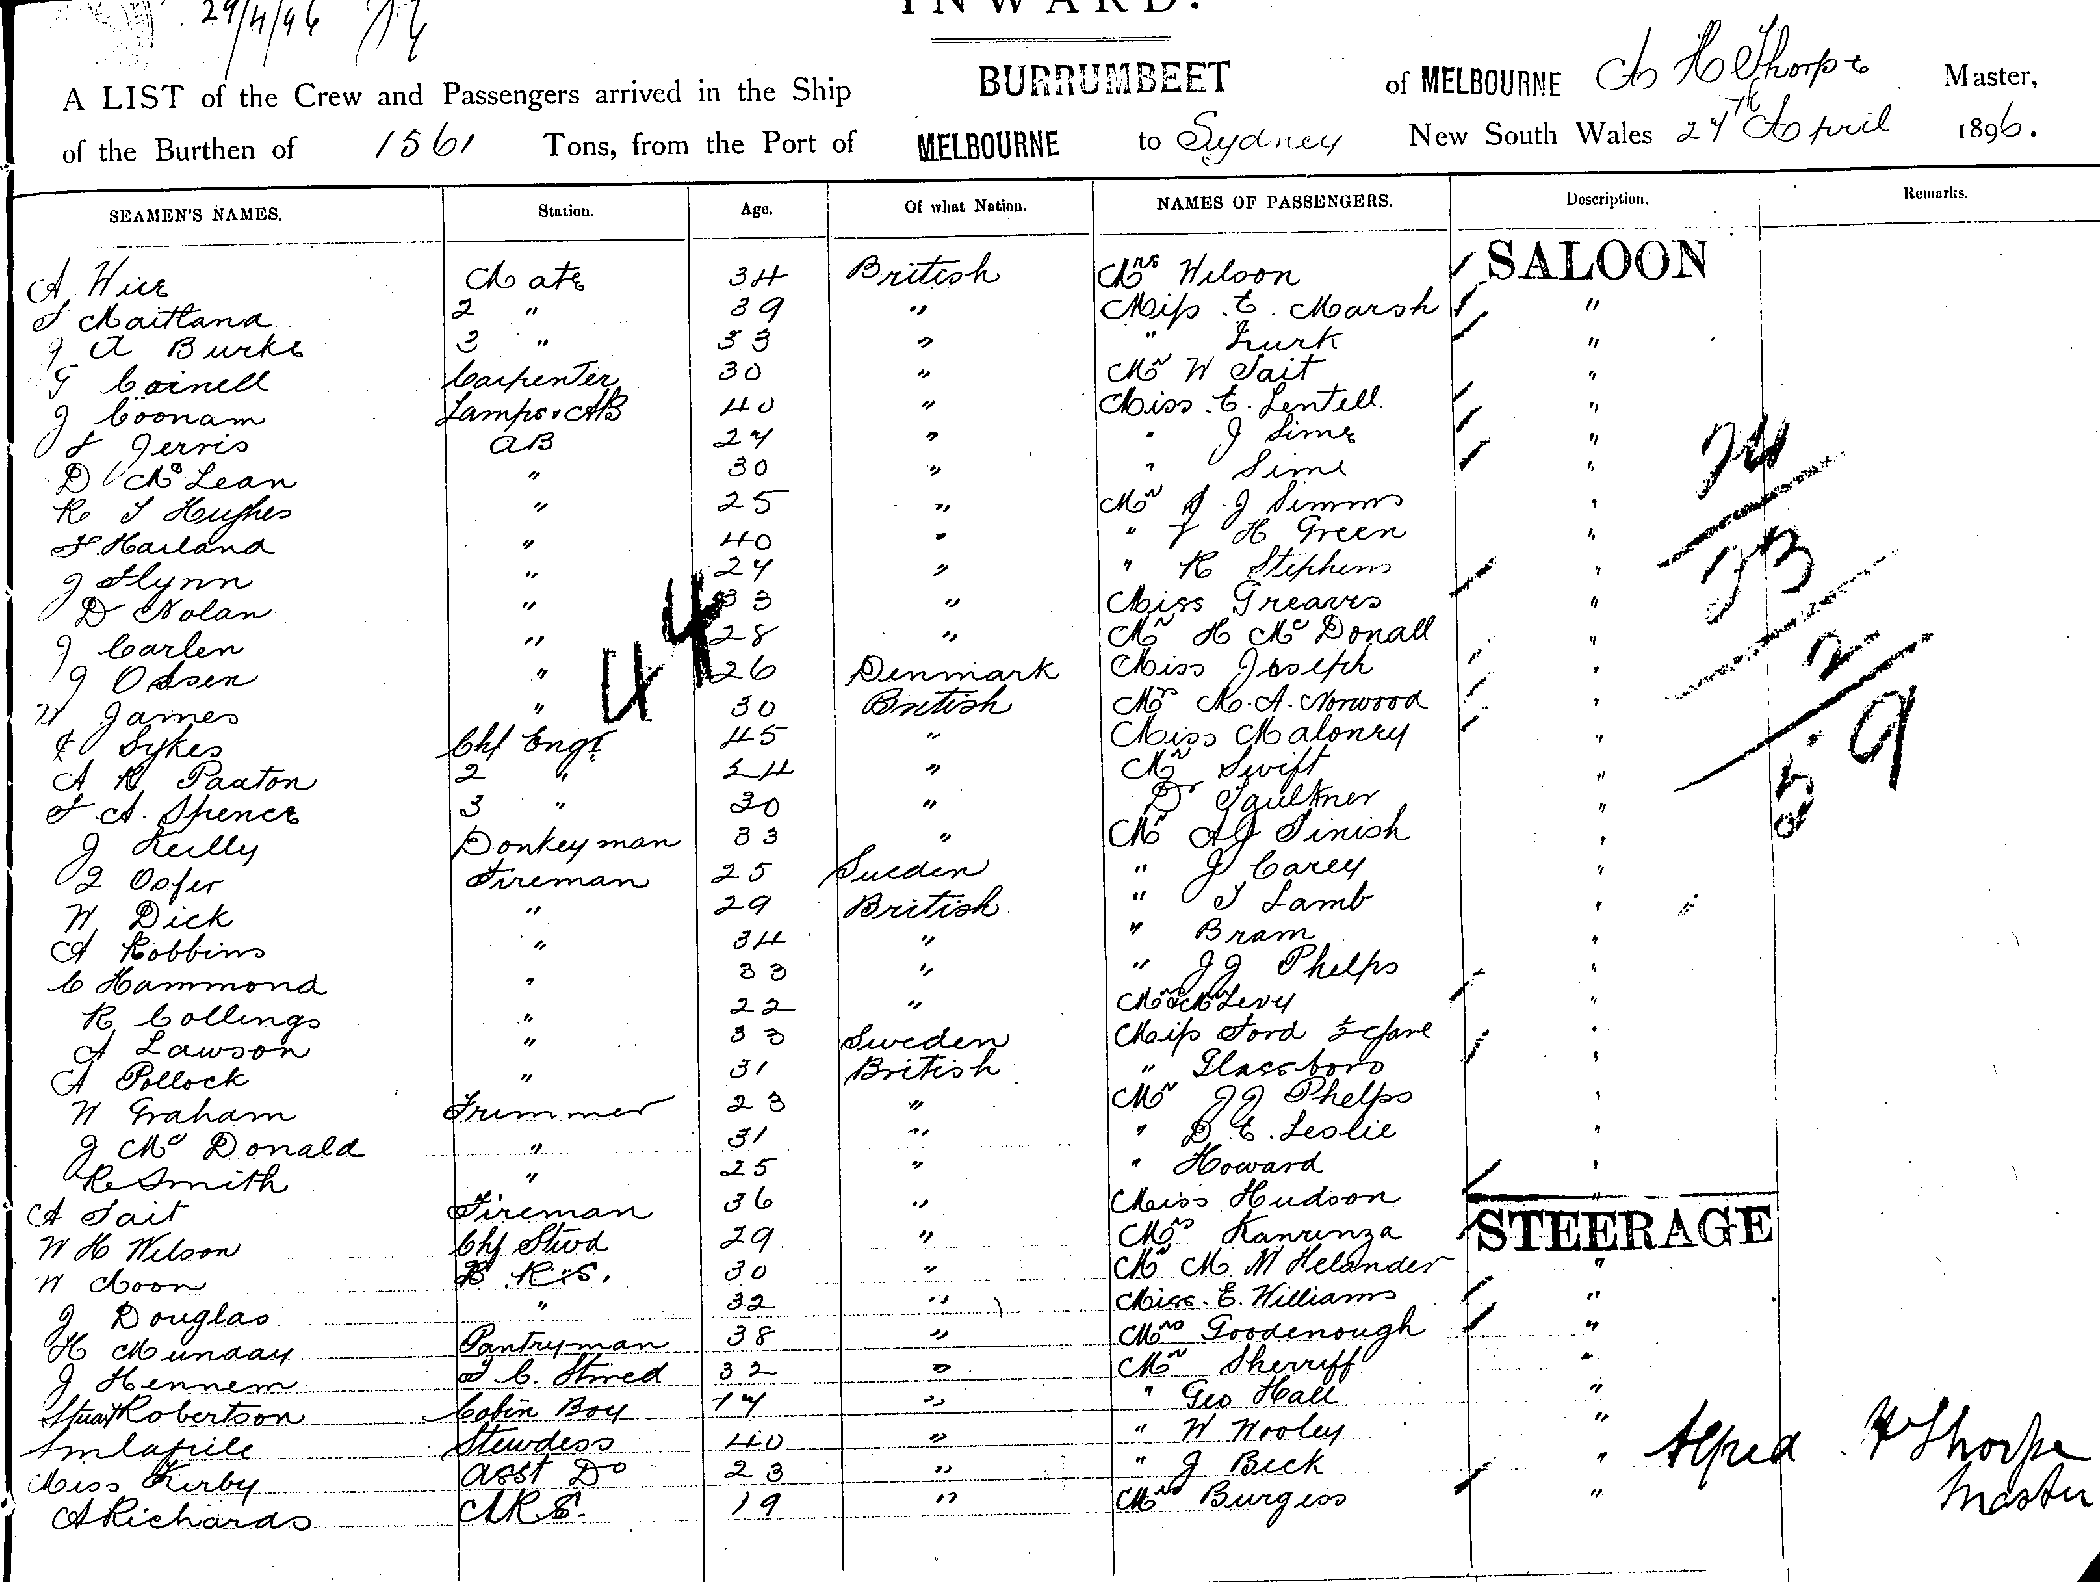 29/4/96
INWARD.
A LIST of the Crew and Passengers arrived in the Ship BURRUMBEET of MELBOURNE A H Thorpe Master,
of the Burthen of 1561 Tons, from the Port of MELBOURNE to Sydney New South Wales 27th April 1896.
SEAMEN'S NAMES. Station. Age. Of what Nation. NAMES OF PASSENGERS. Description. Remarks.
A Mate 34 British Mrs Wilson SALOON
Maitland 2 " 39 " Miss E. Marsh "
J A Burke 3 " 33 " " Turk "
Carpenter 30 " Mr W Tait "
J Coonam Lamps & AB 40 " Miss E. Lentell "
Jervis AB 24 " " J Sime "
D McLean " 30 " " Sime "
R T Hughes " 25 " Mr J Simms "
Harland " 40 " " H Green "
J Flynn " 24 " " R Stephens "
D Nolan " 33 " Miss Greaves "
J Carlen " 28 " Mr H McDonall "
J Olsen " 26 Denmark Miss Joseph "
W James " 30 British Mr M. A. Norwood "
Sykes Chf Engr 45 " Miss Malonry "
A R Paxton 2 " 34 " Mr Swift "
A. Spence 3 " 30 " Dr Faulkner "
J Reilly Donkeyman 33 " Mr A J Finish "
Fireman 25 Sweden " J Carey "
W Dick " 29 British " T Lamb "
A Robbins " 34 " " Bram "
C Hammond " 33 " " J J Phelps "
R Collings " 22 " Mr & Mrs Levy "
A Lawson " 33 Sweden Miss Ford ½ fare "
A Pollock " 31 British " Glassboro "
W Graham Trimmer 23 " Mr J J Phelps "
J McDonald " 31 " " D. E. Leslie "
R Smith " 25 " " Howard "
A Tait Fireman 36 " Miss Hudson "
W H Wilson Chf Stwd 29 " Mrs STEERAGE
W Moon 30 " Mr M. N Helander "
J Douglas " 32 " Miss E. Williams "
H Munday Pantryman 38 " Mrs Goodenough "
J Hennem 32 " Mr Sherriff "
Stuart Robertson Cabin Boy 17 " " Geo Hall "
Stewdess 40 " " W Wooley "
Miss Kirby Asst Do 23 " " J Beck "
A Richards 19 " Mrs Burgess "
44
24
33
2
59
Alfred H Thorpe
Master